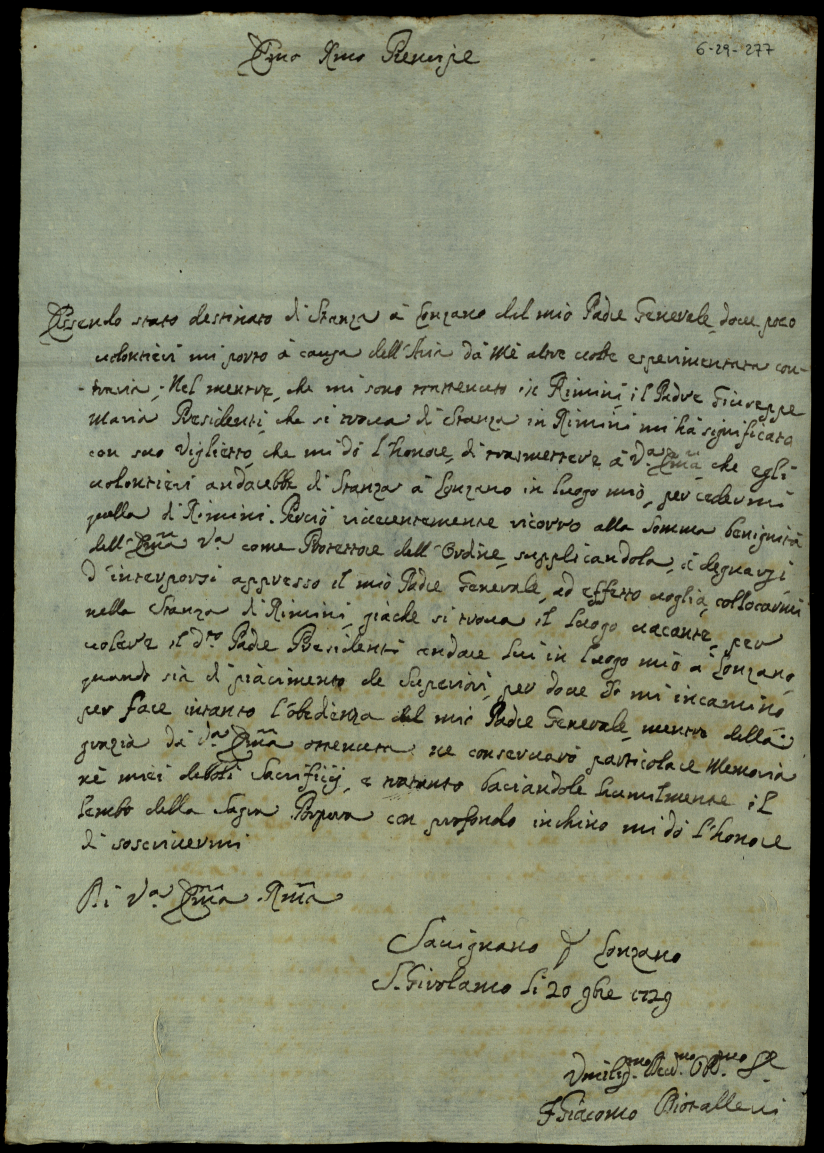 6-29-277
Emo Rmo Prencipe
Essendo stato destinato di Stanza à Lonzano dal mio Padre Generale, dove poco
volontieri mi porto à causa dell'Aria da mè altre volte esperimentata con-
-traria, Nel mentre, che mi sono trattenuto in Rimini il Padre Giuseppe
Maria Presidenti, che si trova di Stanza in Rimini mi hà significato
con suo Viglietto, che mi dò l'honore, di trasmettere à V.a Em̃a che egli
volontieri andarebbe di Stanza à Lonzano in luogo mio, per cedermi
quella di Rimini. Perciò riverentemente ricorro alla somma benignità
dell'Em̃a V.a come Protettore dell'Ordine, supplicandola, à degnarsi
d'interporsi appresso il mio Padre Generale, ad effetto voglia collocarmi
nella Stanza di Rimini, giàche si trova il luogo vacante, per
volere il d.to Padre Presidenti andare lui in luogo mio à Lonzano,
quando sia di piacimento de Superiori, per dove Io mi incamino
per fare intanto l'obedienza del mio Padre Generale, mentre della
grazia da V.a Em̃a ottenuta ne conservarò particolare Memoria
nè miei deboli Sacrificij, e trattanto baciandole humilmente il
lembo della Sagra Porpora con profondo inchino mi dò l'honore
di soscrivermi
Di V.a Em̃a Rm̃a
Savignano p Lonzano
S. Girolamo li 20 9bre 1729
Umiliss.mo Dev.mo Obb.mo Se
F Giacomo